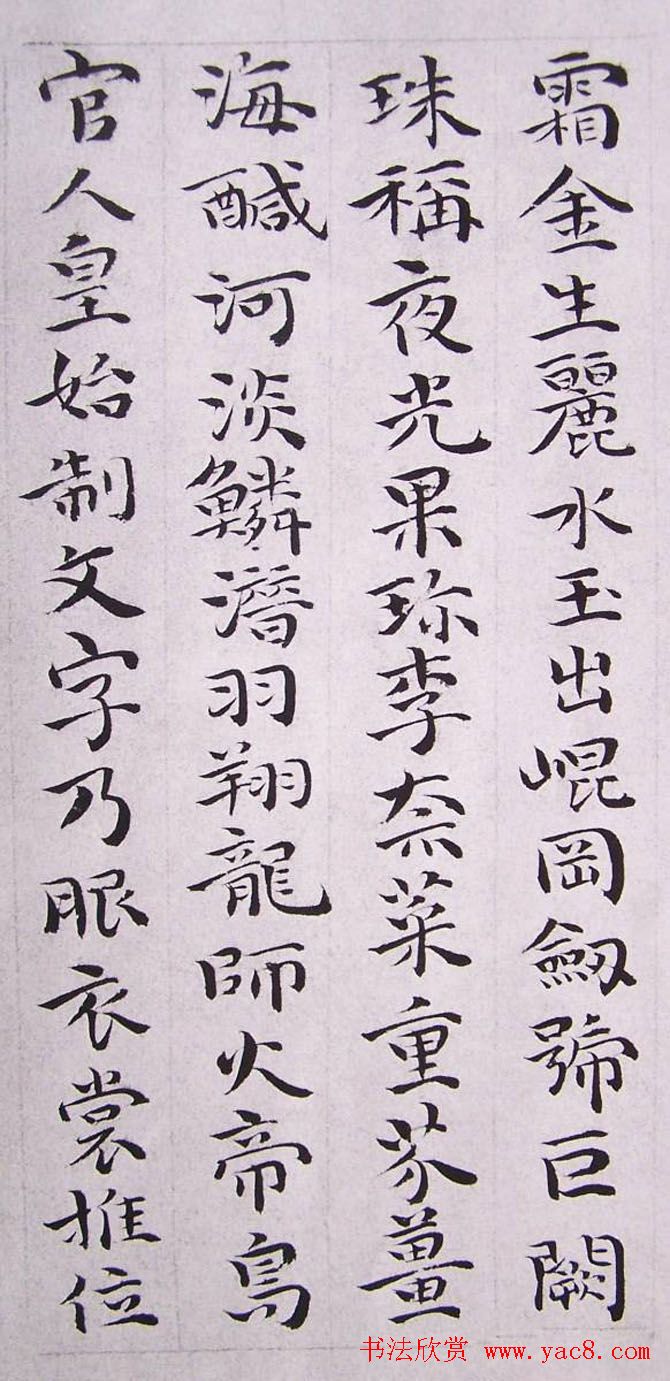 霜金生麗水玉出崐岡劔號巨闕
珠稱夜光果珎李柰菜重芥薑
海醎河淡鱗潛羽翔龍師火帝鳥
官人皇始制文字乃服衣裳推位
书法欣赏 www.yac8.com